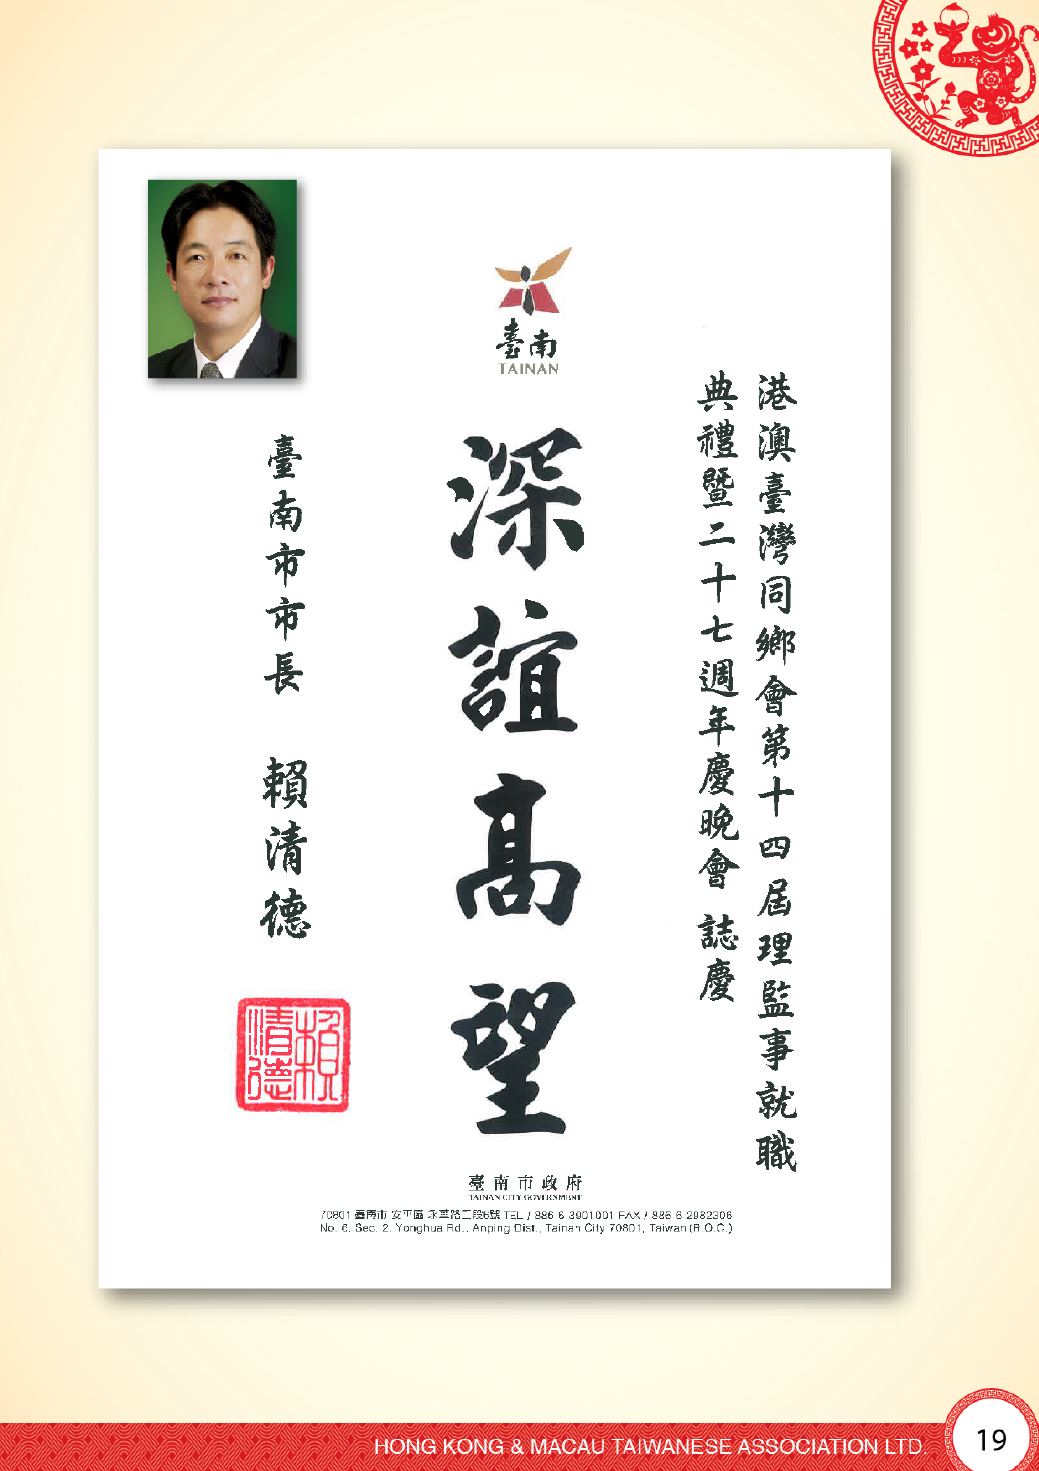 臺南
TAINAN
港澳臺灣同鄉會第十四屆理監事就職
典禮暨二十七週年慶晚會 誌慶
深誼高望
臺南市市長 賴清德
賴清德
臺南市政府
TAINAN CITY GOVERNMENT
70801 臺南市 安平區 永華路二段6號 TEL / 886-6-3901001 FAX / 886-6-2982306
No. 6, Sec. 2, Yonghua Rd., Anping Dist., Tainan City 70801, Taiwan (R.O.C.)
HONG KONG & MACAU TAIWANESE ASSOCIATION LTD.
19